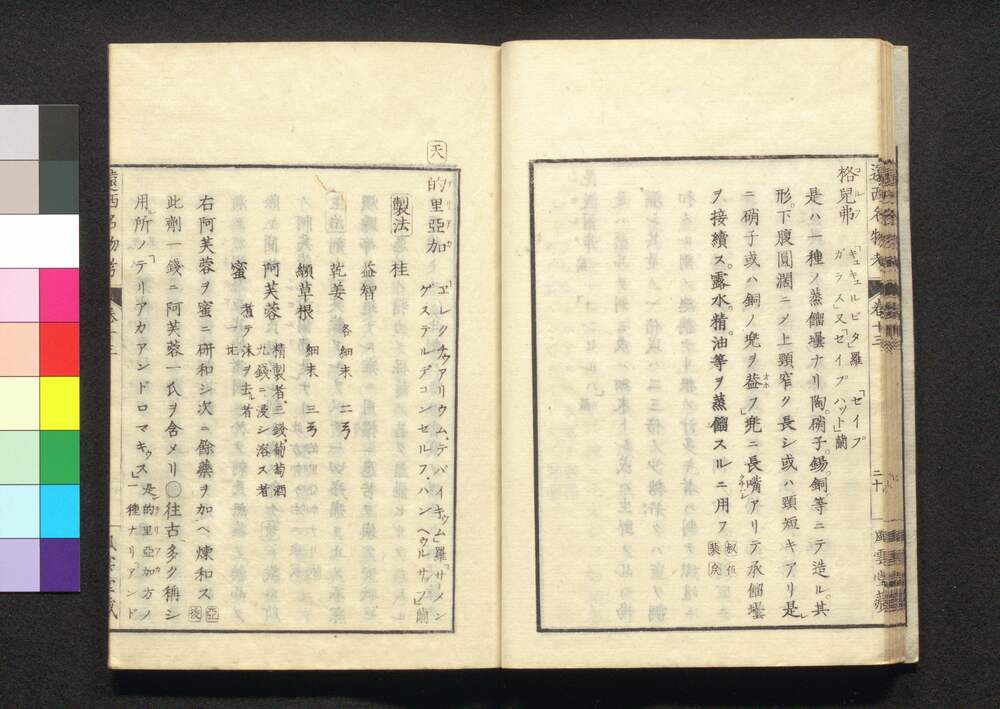 遠西名物考 卷十三 二十 風雲堂藏
格兒弗 コルフ 「キュキュルビタ」羅 「セイプ
ガラス」又「セイプハット」蘭
是ハ一種ノ蒸餾壜ナリ陶。硝子。錫。銅等ニテ造ル。其
形。下腹圓濶ニメ上頸窄ク長シ或ハ頸短キアリ是
ニ硝子或ハ銅ノ兠ヲ葢フ兠ニ長嘴アリテ承餾壜
ヲ接續ス。露水。精。油等ヲ蒸餾スルニ用フ
天
的里亞加 「ヱレクチュアリウム、デバイキュム」羅「サーメン
ゲステルデコンセルフ、ハン、ヘウルサフ」蘭
製法 桂
益智
乾姜 各細末 二ヲ
纈草根 細末 三ヲ
阿芙蓉 精製者、三錢、葡萄酒
九錢ニ浸シ溶ス者
蜜 煮テ沫ヲ去ル者
一匕
右阿芙蓉ヲ蜜ニ研和シ次ニ餘藥ヲ加ヘ煉和ス
此劑一錢ニ阿芙蓉一氏ヲ含メリ○往古多ク稱シ
用所ノテリアカアンドロマキュス」是的里亞加方ノ
一種ナリ「アンド
遠西名物考 卷十三